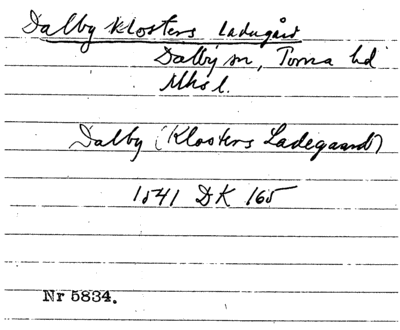 Dalby Klosters Ladugård
Dalby sn, Torna hd
Mhs l.
Dalby (Klosters Ladegaard)
1541 DK 165
Nr 5834.